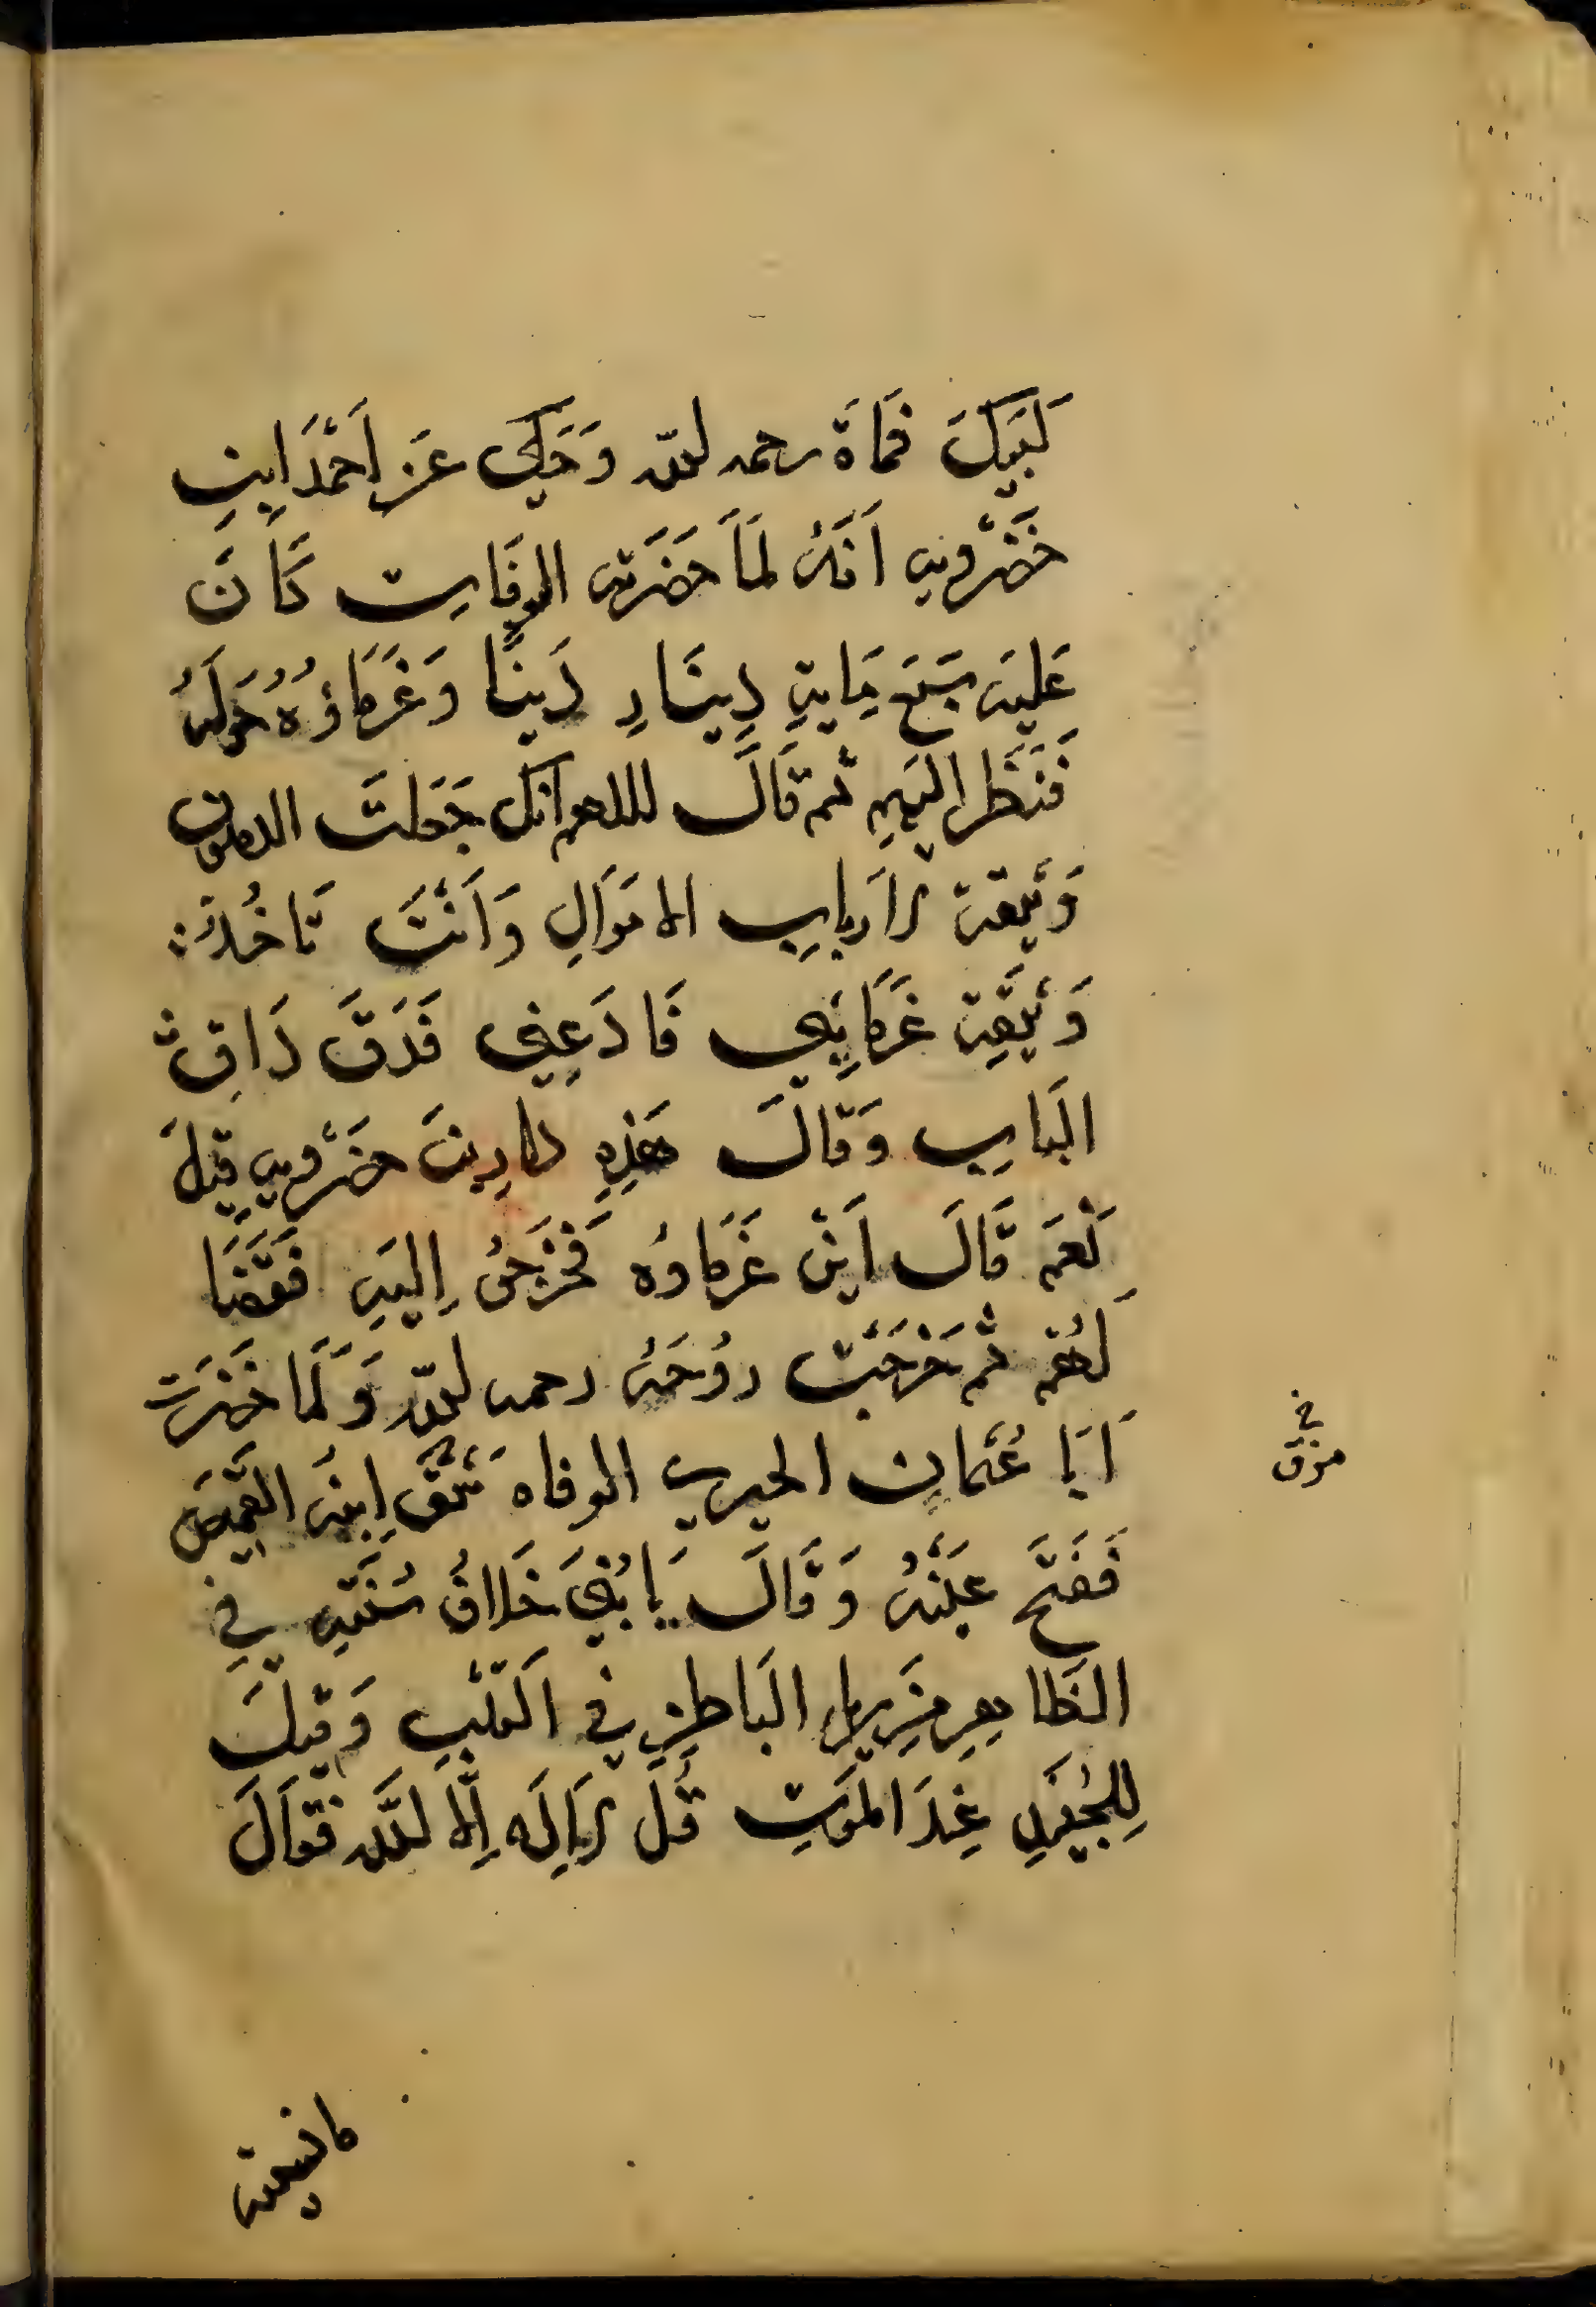 لَبَيكَ فَمَاةَ رحمه لله وَحَكِى عَن اَحْمَدَ ابنِ
خَضْرَويهِ اَنَهُ لمَاَ حَضَرَته الوفَاتِ كَاَنَ
عَليَه سَبَعَ مَايةِ دِينَارِ دَينًا وَغَرَمَاؤهُ حَولَهُ
فَنَظَر اليَهِم ثم قَالَ لللهم انك جَعَلتَ الرهون
وَثيقة لاَربابِ الاموَالِ وَاَنْتَ تَاخُذ
وَثيقَةِ غَرَمَايِي فَادَعِني فَدَقَ دَاقٌ
البَابِ وَقالَ هَذِهِ دار ابن حضرَويهِ قيِلَ
نَعَم قَالَ اَيْنَ غَرَمَاوُه فَخَرَجُو اِليَهِ فَقَضَا
لَهُم ثم خَرَجَت روُحَهُ رحمه لله وَلمَا حَضَرَت
اَبَا عُثمَانِ الحيري الوفاه شَقَ اِبنه القَميِصَ
فَفَتَح عَينَهُ وَقَالَ يَابُنيَ خَلافُ سُنَةِ فِي
الظاهِرِ مِن رياء البَاطِنِ فِي القَلبِ وَقيلَ
لِلجُنَيدِ عِندَ الموَتِ قُل لااِلَه اِلا لله فَقَالَ
في
مزق
مانسيته